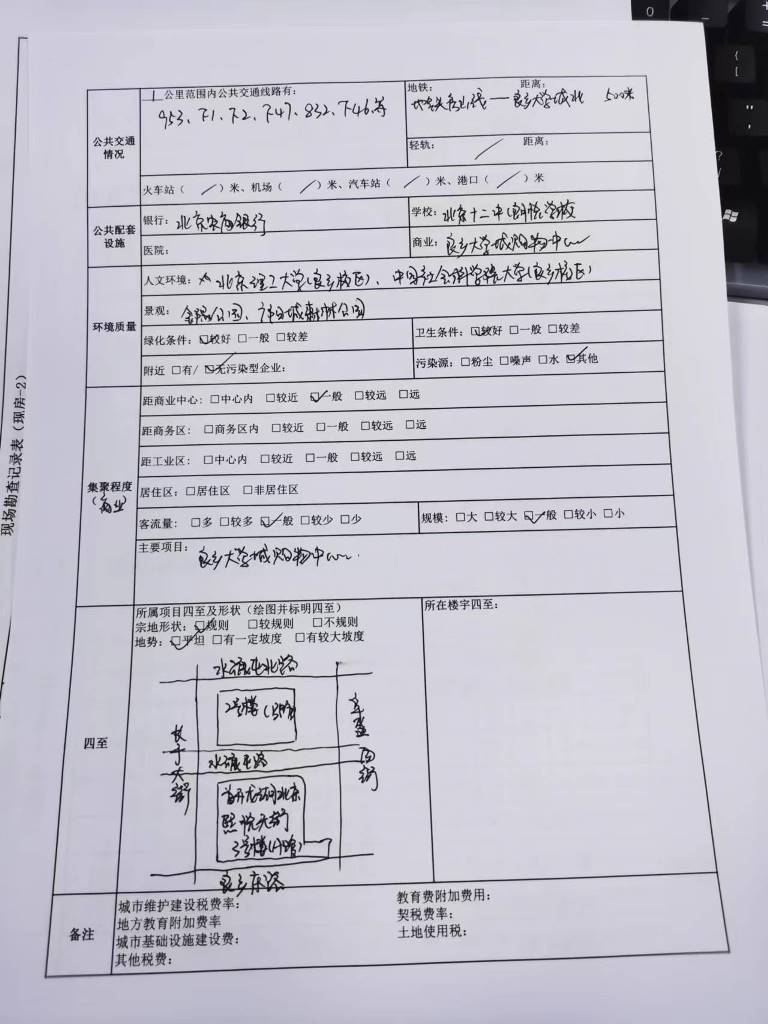 现场勘查记录表（现房-2）
公共交通情况
1 公里范围内公共交通线路有：
953、F1、F2、F47、832、F46等
地铁： 距离：
地铁房山线——良乡大学城北 500米
轻轨： / 距离：
火车站（ / ）米、机场（ / ）米、汽车站（ / ）米、港口（ / ）米
公共配套设施
银行：北京农商银行
学校：北京十二中朗悦学校
医院：
商业：良乡大学城购物中心
环境质量
人文环境：北京理工大学(良乡校区)、中国社会科学院大学(良乡校区)
景观：公园、森林公园
绿化条件：☑较好 □一般 □较差
卫生条件：☑较好 □一般 □较差
附近 □有/ ☑无污染型企业：
污染源：□粉尘 □噪声 □水 ☑其他
集聚程度
（商业）
距商业中心：□中心内 □较近 ☑一般 □较远 □远
距商务区：□商务区内 □较近 □一般 □较远 □远
距工业区：□中心内 □较近 □一般 □较远 □远
居住区：□居住区 □非居住区
客流量：□多 □较多 ☑一般 □较少 □少
规模：□大 □较大 ☑一般 □较小 □小
主要项目：
良乡大学城购物中心.
四至
所属项目四至及形状（绘图并标明四至）
宗地形状：☑规则 □较规则 □不规则
地势：☑平坦 □有一定坡度 □有较大坡度
所在楼宇四至：
水碾屯北路
2号楼
长于大街
水碾屯路
西街
首开龙湖北京
熙悦天街
3号楼
良乡东路
备注
城市维护建设税费率：
教育费附加费用：
地方教育附加费率
契税费率：
城市基础设施建设费：
土地使用税：
其他税费：